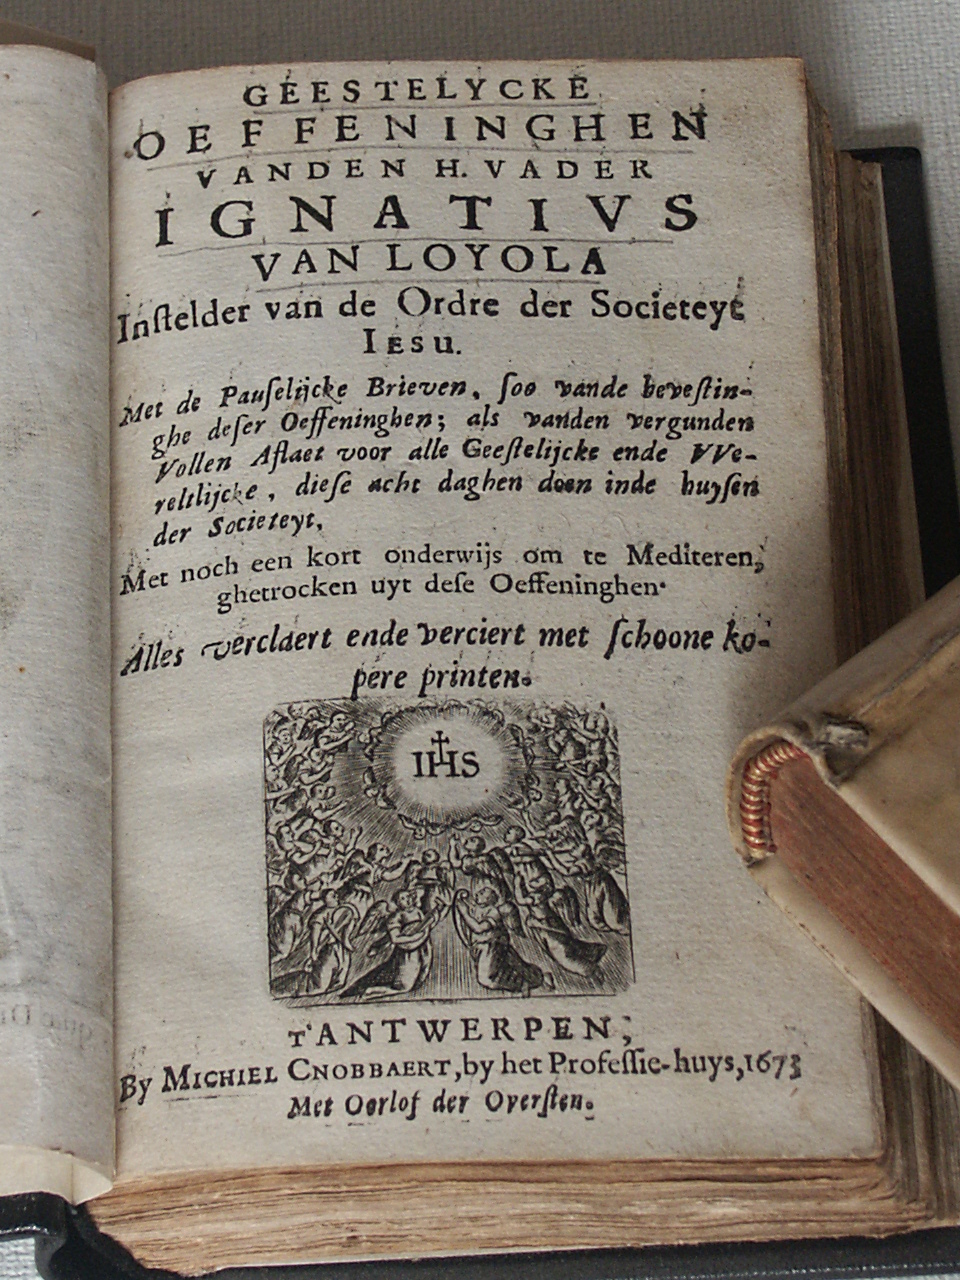 GEESTELYCKE
OEFFENINGHEN
VANDEN H. VADER
IGNATIVS
VAN LOYOLA
Inſtelder van de Ordre der Societeyt
IESU.
Met de Pauſelijcke Brieven, ſoo vande beveſtin-
ghe deſer Oeffeninghen; als vanden vergunden
Vollen Aflaet voor alle Geeſtelijcke ende VVe-
reltlijcke, dieſe acht daghen doen inde huyſen
der Societeyt,
Met noch een kort onderwijs om te Mediteren,
ghetrocken uyt deſe Oeffeninghen.
Alles verclaert ende verciert met ſchoone ko-
pere printen.
IHS
T'ANTWERPEN,
By MICHIEL CNOBBAERT, by het Profeſſie-huys, 1673
Met Oorlof der Overſten.